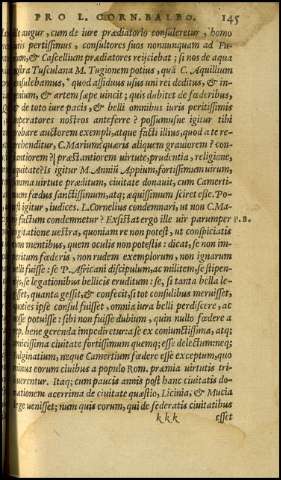 PRO L. CORN. BALBO. 145
augur, cum de iure prædiatorio consuleretur, homo
peritissimus, consultores suos nonnunquam ad Fu-
& Cascellium prædiatores reijciebat; si nos de aqua
Tusculana M. Tugionem potius, quà C. Aquillium
consulebamus, quod assiduus usus uni rei deditus, & in-
& artem sæpe uincit; quis dubitet de fœderibus,
& de toto iure pacis, & belli omnibus iuris peritissimis
imperatores nostros anteferre? possumusq́ue igitur tibi
probare auctorem exempli, atque facti illius, quod a te re-
prehenditur, C. Marium? quæris aliquem grauiorem? con-
stantiorem? præstantiorem uirtute, prudentia, religione,
æquitate? Is igitur M. Annium Appium, fortissimum uirum,
summa uirtute præditum, ciuitate donauit, cum Camerti-
fœdus sanctissimum, atq; æquissimum sciret esse. Po-
igitur, iudices, L. Cornelius condemnari, ut non C. Ma-
factum condemnetur? Existat ergo ille uir parumper P. B.
cogitatione uestra, quoniam re non potest, ut conspiciatis
mentibus, quem oculis non potestis: dicat, se non im-
peritum fœderis, non rudem exemplorum, non ignarum
belli fuisse: se P. Africani discipulum, ac militem, se stipen-
se legationibus bellicis eruditum: se, si tanta bella le-
gisset, quanta gessit, & confecit, si tot consulibus meruisset,
ipse consul fuisset, omnia iura belli perdiscere, ac
potuisse: sibi non fuisse dubium, quin nullo fœdere a
rep. bene gerenda impediretur: a se ex coniunctissima, atq;
amicissima ciuitate fortissimum quemq; esse delectum: neq;
neque Camertium fœdere esse exceptum, quo
minus eorum ciuibus a populo Rom. præmia uirtutis tri-
buerentur. Itaq; cum paucis annis post hanc ciuitatis do-
nationem acerrima de ciuitate quæstio, Licinia, & Mucia
lege uenisset; num quis eorum, qui de fœderatis ciuitatibus
kkk esset